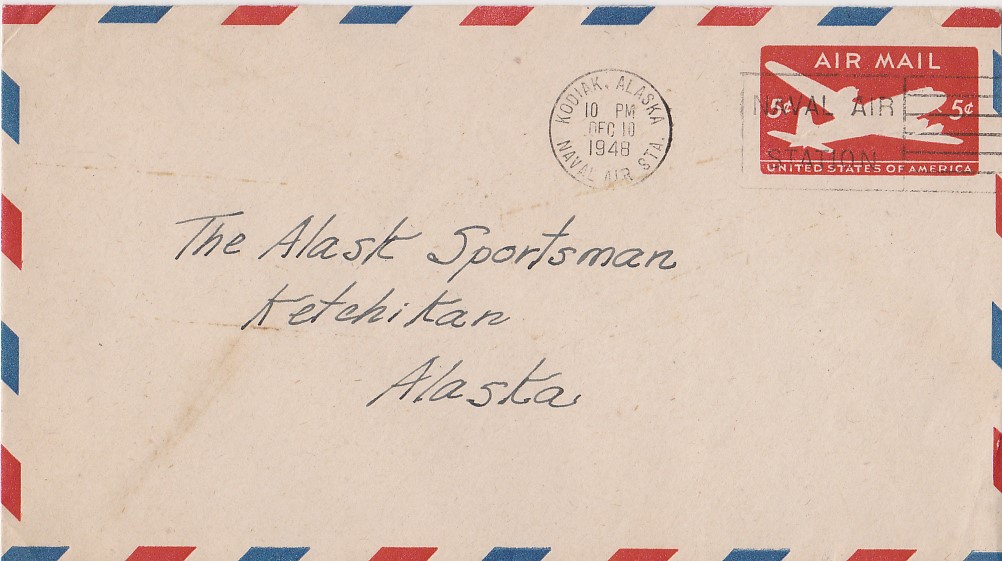 AIR MAIL
5¢ 5¢
UNITED STATES OF AMERICA
KODIAK, ALASKA
10 PM
DEC 10
1948
NAVAL AIR STA.
NAVAL AIR
STATION
The Alask Sportsman
Ketchikan
Alaska